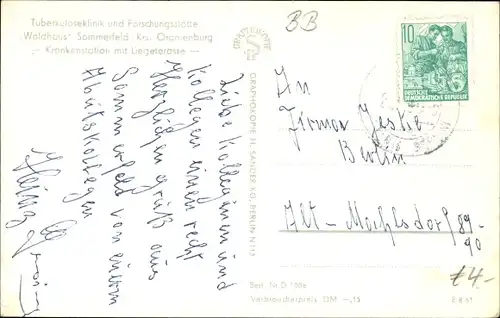 Tuberkuloseklinik und Forschungsstätte
"Waldhaus" Sommerfeld Krs. Oranienburg
- Krankenstation mit Liegeterasse -
BB
GRAPHOKOPIE
GRAPHOKOPIE H. SANDER KG, BERLIN N 113
10
DEUTSCHE
DEMOKRATISCHE REPUBLIK
Liebe Kolleginnen und
Kollegen einen recht
Herzlichen Gruß aus
Sommerfeld von euern
Arbeitskollegen
Heinz
An
Firma Jeske
Berlin
Alt-Mahlsdorf 89-
90
£4-
Best. Nr. D 180e
Verbraucherpreis DM -,15